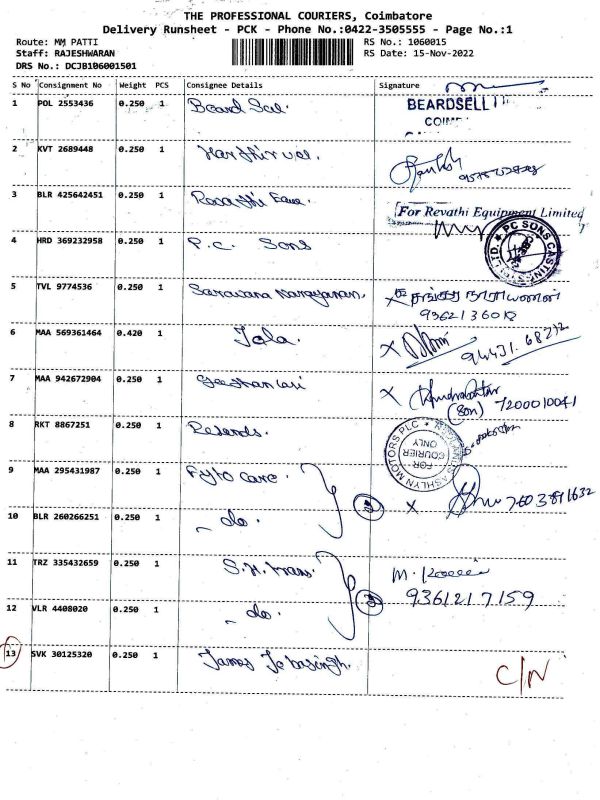 THE PROFESSIONAL COURIERS, Coimbatore
Delivery Runsheet - PCK - Phone No.:0422-3505555 - Page No.:1
Route: MM PATTI
RS No.: 1060015
Staff: RAJESHWARAN
RS Date: 15-Nov-2022
DRS No.: DCJB106001501
S No Consignment No Weight PCS Consignee Details Signature
1 POL 2553436 0.250 1 Beard Sel.
BEARDSELL
2 KVT 2689448 0.250 1
3 BLR 425642451 0.250 1
For Revathi Equipment Limited
4 HRD 369232958 0.250 1 P.C. Sons
PC SONS CASTINGS
5 TVL 9774536 0.250 1 Saravana Narayanan.
நாராயணன்
9362136018
6 MAA 569361464 0.420 1
94431 68212
7 MAA 942672904 0.250 1
(Son) 7200010041
8 RKT 8867251 0.250 1
ASHLYN MOTORS PLC
FOR COURIER ONLY
9 MAA 295431987 0.250 1 Fyto care.
10 BLR 260266251 0.250 1 - do.
11 TRZ 335432659 0.250 1
9361217159
12 VLR 4408020 0.250 1 - do.
13 SVK 30125320 0.250 1 James Jebasingh.
C/N